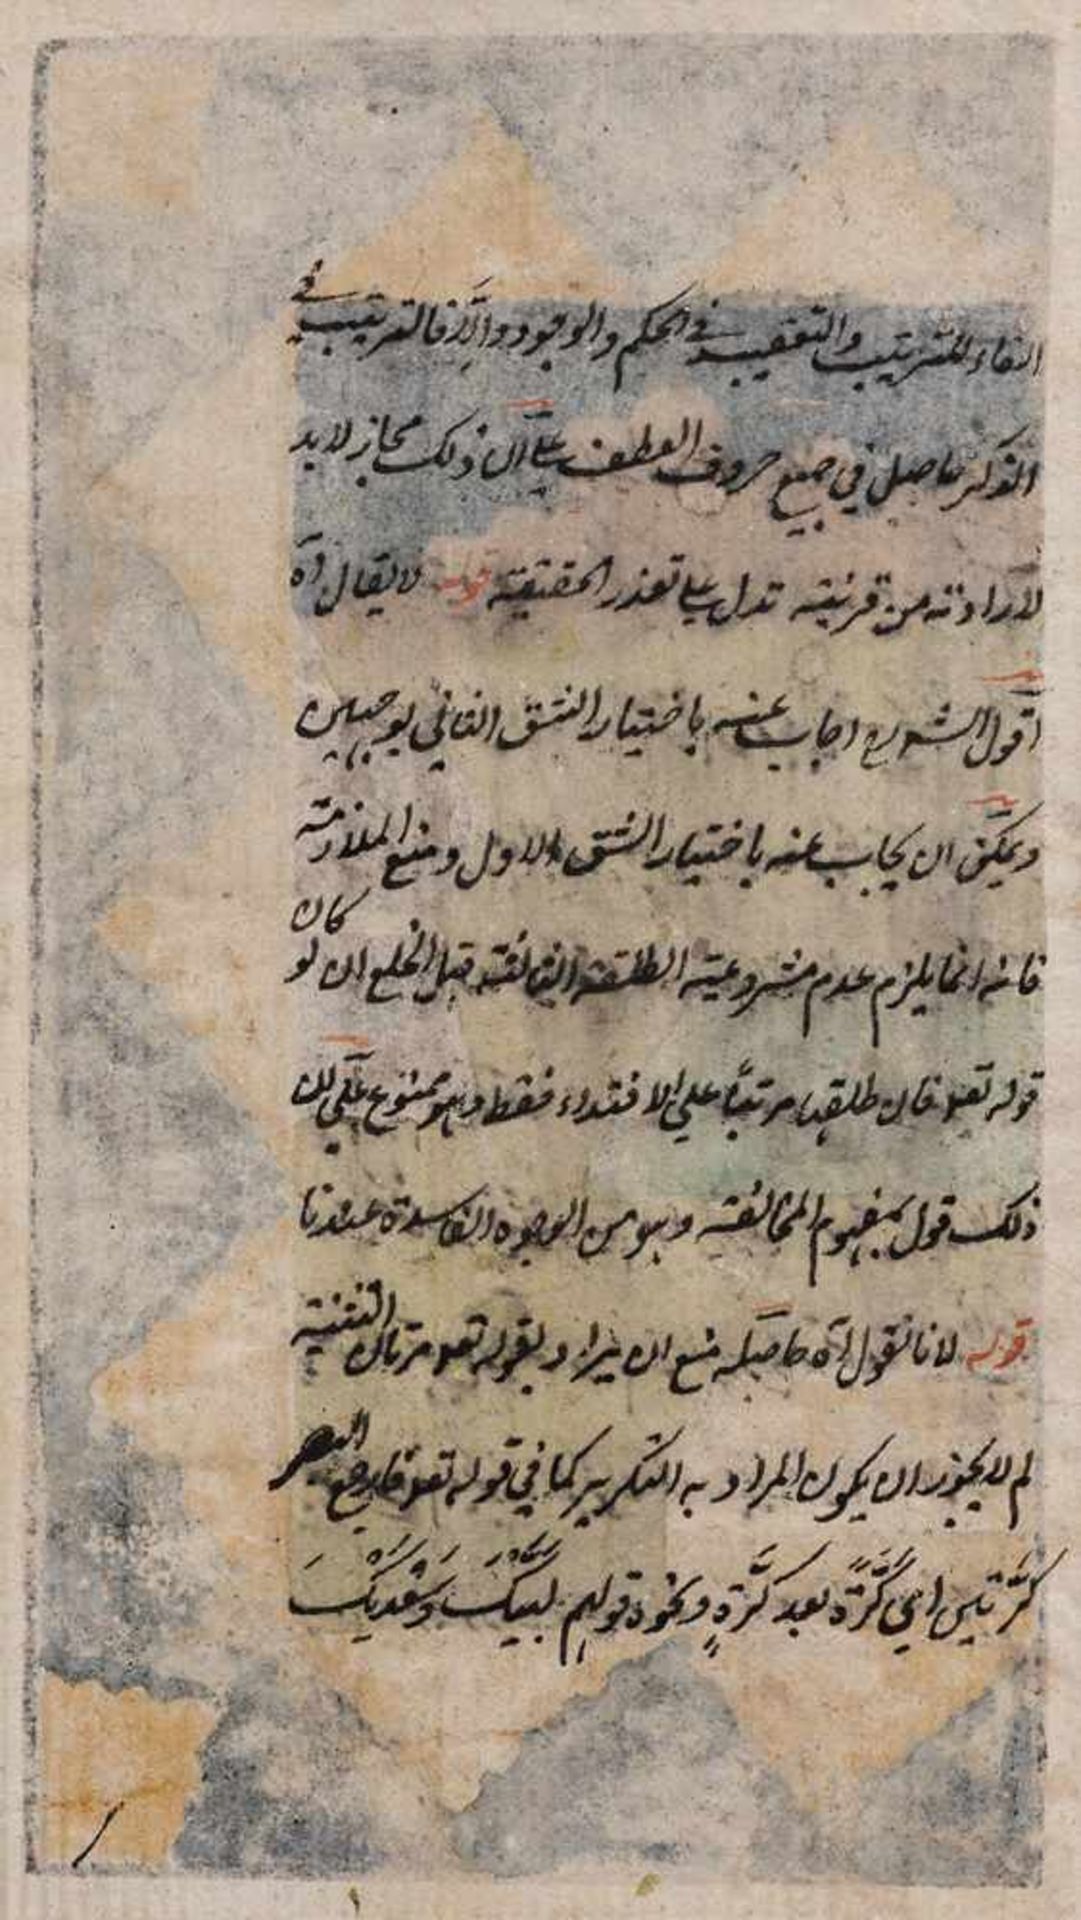 الفاء للترتيب والتعقيب في الحكم والوجود والا فالترتيب في
الذكر حاصل في جميع حروف العطف على ان ذلك مجاز لا بد
لارادته من قرينة تدل على تعذر الحقيقة قوله لا يقال آه
اقول الشارح اجاب عنه باختيار الشق الثاني بوجهين
ويمكن ان يجاب عنه باختيار الشق الاول ومنع الملازمة
فانه انما يلزم عدم مشروعية الطلقة الثالثة قبل الخلع ان لو كان
قوله تعو فان طلقها مرتبا على الافتداء فقط وهو ممنوع على ان
ذلك قول بمفهوم المخالفة وهو من الوجوه الفاسدة عندنا
قوله لانا نقول آه حاصله منع ان يراد بقوله تعو مرتان التثنية
لم لا يجوز ان يكون المراد به التكرير كما في قوله تعو فارجع البصر
كَرَّتين اي كَرَّةً بعد كَرَّةٍ ونحوه قولهم لبيكَ وسَعْدَيْكَ